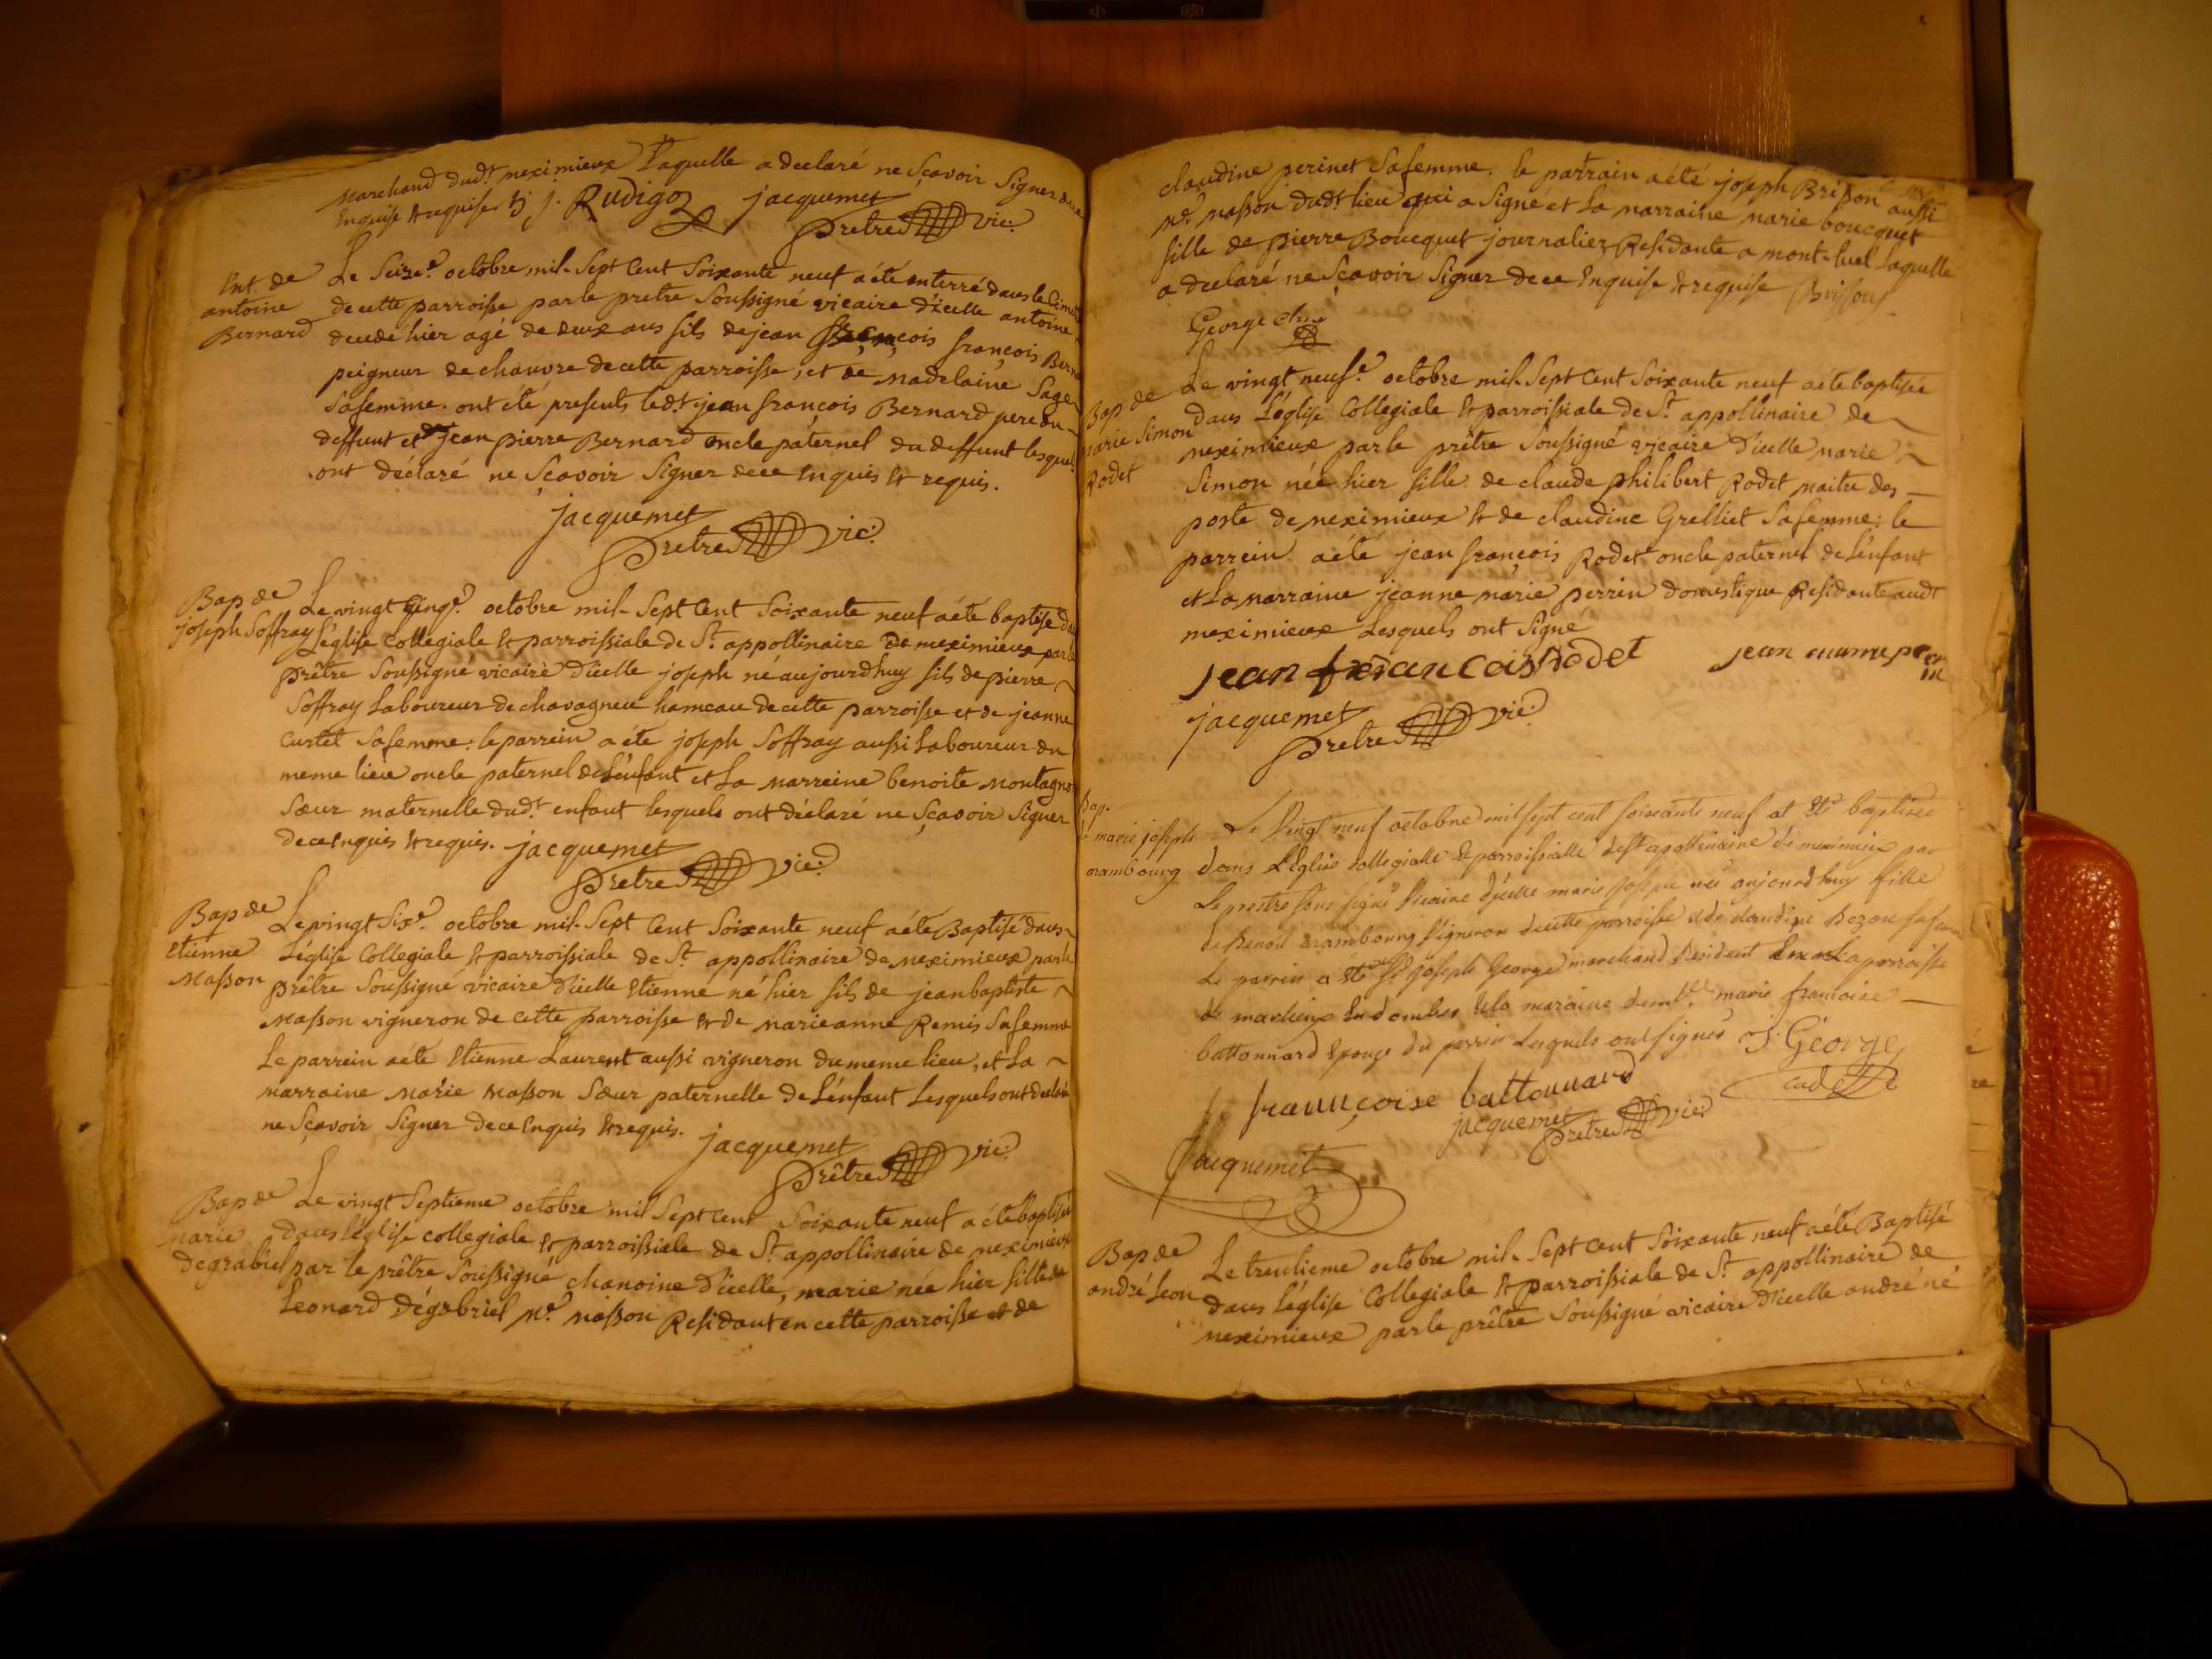 Marchand dudt. meximieux Laquelle a declaré ne Sçavoir Signer de ce
Enquise et requise J. Rudigoz jacquemet
Prêtre vic.
Ent de
antoine
Bernard
Le Seize.e octobre mil Sept Cent Soixante neuf a été enterré dans le Cime
de cette parroisse par le pretre Soussigné vicaire d'icelle antoine
decede hier agé de deux ans fils de jean françois françois Berna
peigneur de chanvre de cette parroisse, et de Madelaine Sage
Sa femme. ont été presents led.t jean françois Bernard pere du
deffunt et jean pierre Bernard oncle paternel du deffunt lesquel
ont déclaré ne Sçavoir Signer de ce Enquis et requis.
jacquemet
Prêtre vic.
Bap de
joseph Soffray
Le vingt cinq.e octobre mil Sept Cent Soixante neuf a été baptisé da
L'église Collegiale et parroissiale de St. appollinaire de meximieux par le
Prêtre Soussigné vicaire d'icelle joseph né aujourd'huy fils de pierre
Soffray Laboureur de chavagneu hameau de cette parroisse et de jeanne
Curtet Sa femme. le parrein a été joseph Soffray aussi Laboureur du
meme lieu oncle paternel de L'enfant et La marreine benoite Montagno
Sœur maternelle dudt. enfant lesquels ont déclaré ne Sçavoir Signer
de ce Enquis et requis. jacquemet
Prêtre vic.
Bap de
Etienne
Masson
Le vingt Six.e octobre mil Sept Cent Soixante neuf a été Baptisé dans
L'église Collegiale et parroissiale de St. appollinaire de meximieux par le
Prêtre Soussigné vicaire d'icelle Etienne né hier fils de jean baptiste
Masson vigneron de cette parroisse et de marie anne Remis Sa femme
Le parrein a été Etienne Laurent aussi vigneron du meme lieu, et La
marraine Marie Masson Sœur paternelle de L'enfant Lesquels ont declaré
ne Sçavoir Signer de ce Enquis et requis. jacquemet
Prêtre vic.
Bap de
Marie
degabriel
Le vingt Septieme octobre mil Sept Cent Soixante neuf a été baptisée
dans L'église collegiale et parroissiale de St. appollinaire de meximieux
par le prêtre Soussigné chanoine d'icelle, marie née hier fille de
Leonard dégabriel M.e masson Residant en cette parroisse et de
claudine perinet Sa femme. le parrain a été joseph Brisson aussi
M.e masson dudt. lieu qui a Signé et La marraine marie boucquet
fille de pierre Boucquet journalier Residante a mont-luel Laquelle
a declaré ne Sçavoir Signer de ce Enquise et requise Brisson
George chne
Bap de
marie Simon
Rodet
Le vingt neuf.e octobre mil Sept Cent Soixante neuf a été baptisée
dans L'église Collegiale et parroissiale de St. appollinaire de
meximieux par le prêtre Soussigné vicaire d'icelle marie
Simon née hier fille de claude philibert Rodet maitre des
poste de meximieux et de claudine Grelliet Sa femme; le
parrein a été jean françois Rodet oncle paternel de L'enfant
et La marraine jeanne marie perrin domestique Residante audt
meximieux Lesquels ont Signé
jean francois Rodet
jacquemet
Prêtre vic.
Bap.
marie joseph
arambourg
Le Vingt neuf octobre mil sept cent soixante neuf at été baptisée
dans L'Eglise collegialle et parroissialle de St apollinaire de meximieux par
Le prestre sous signé Vicaire d'icelle marie Joseph née aujourd'huy fille
de Benoit arambourg Vigneron de cette parroisse et de claudine Bozon sa femme
Le parrin a été Sr Joseph George marchand Resident La parroisse
de marlieux En dombes et la maraine demlle. marie françoise
battonnard Epouze du parrin Lesquels ont signés J. George
cadet
françoise battonnard
jacquemet
Prêtre vic.
Jacquemet
Bap de
andré Leon
Le trentieme octobre mil Sept Cent Soixante neuf a été Baptisé
dans L'église Collegiale et parroissiale de St. appollinaire de
meximieux par le prêtre Soussigné vicaire d'icelle andré né